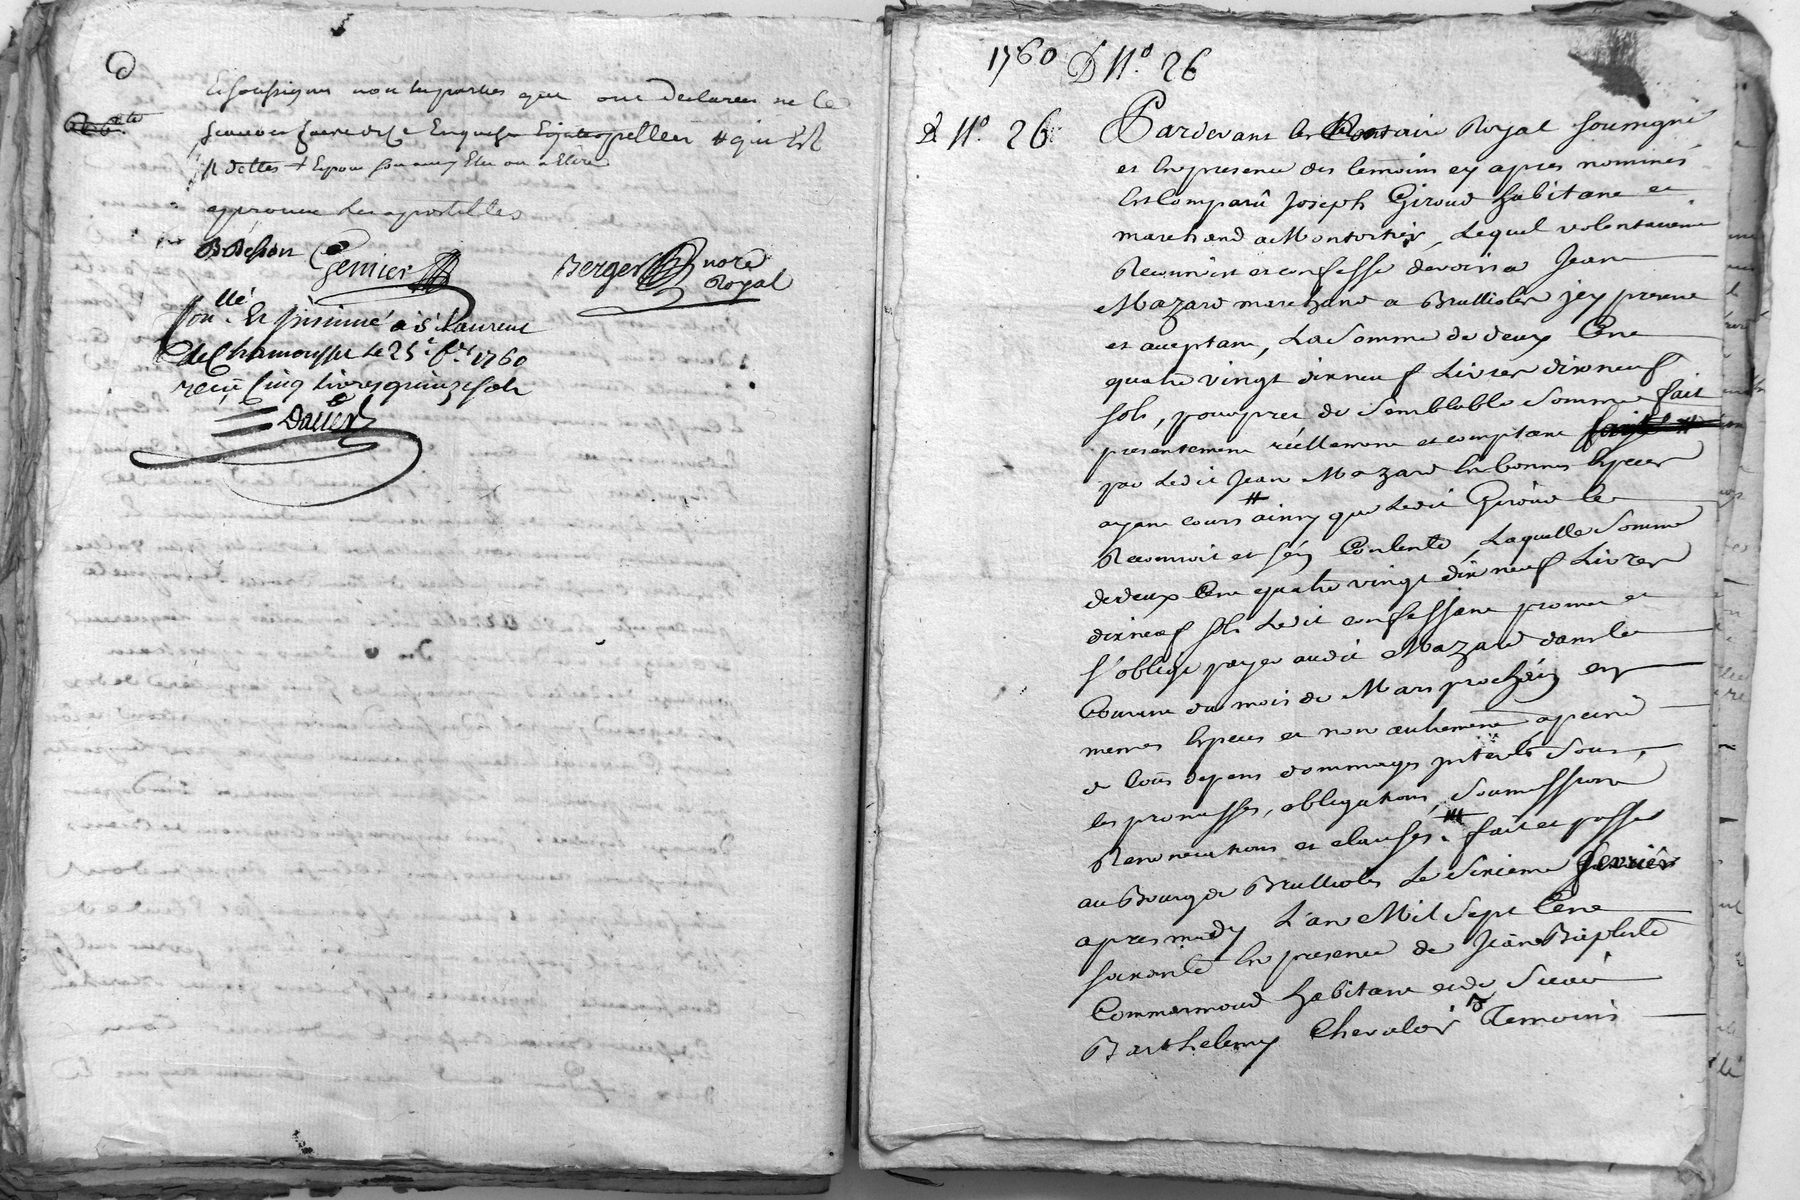 Et soussigner non les parties que ont declarees ne le
scavoir faire de ce Enquises Et interpellees # qui Est
# dettes + Et pour son amy Elu ou a Elire
approuvé les apostilles
BDesson Gervier Berger no.re
Royal
Con.llé Et insinué a St Laurent
de Chamousset Le 25.e f.er 1760
reçu cinq livres quinze sols
Dalier
1760 D N.o 26
D N.o 26
Pardevant le Notaire Royal soussigné
et En presence des temoins cy apres nommés
Est Comparû Joseph Giroud habitant et
marchand a Montortier, Lequel volontairement
Reconnoit et confesse devoir a Jean
Mazard marchand a Brullioles jcy present
et acceptant, La Somme de deux Cent
quatre vingt dix neuf Livres dix neuf
sols, pour prêt de Semblable Somme fait
presentement réellement et comptant
par Ledit Jean Mazard En bonnes Especes
ayant cours # ainsy que Ledit Giroud le
Reconnoit et s'en Contente, Laquelle Somme
de deux Cent quatre vingt dix neuf Livres
dix neuf sols Ledit confessant promet et
s'oblige payer audit Mazard dans le
Courant du mois de Mars prochain en
memes Especes et non autrement a peine
de tous depens dommages interests Sous,
les promesses, obligations, Soumissions
Renonciations et clauses. # fait et passé
au Bourg de Brullioles Le Sixieme fevrier
apres midy L'an Mil Sept Cent
soixante En presence de Jean Baptiste
Commarmond habitant et de Sieur
Barthelemy Chevalier Temoins